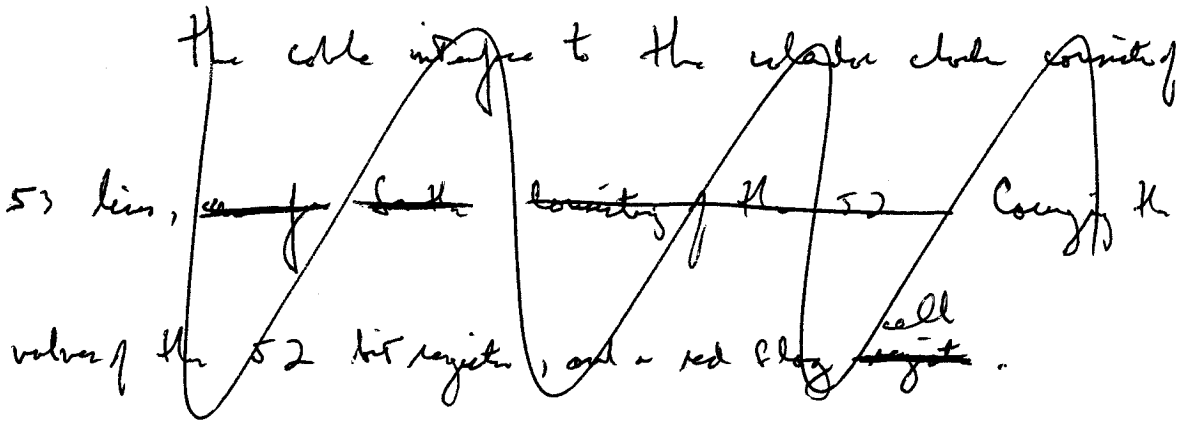 The cable interface to the calendar clock consists of
53 lines, one for for the consisting of the 52 Carrying the
values of the 52 bit register, and a red flag cell regist.